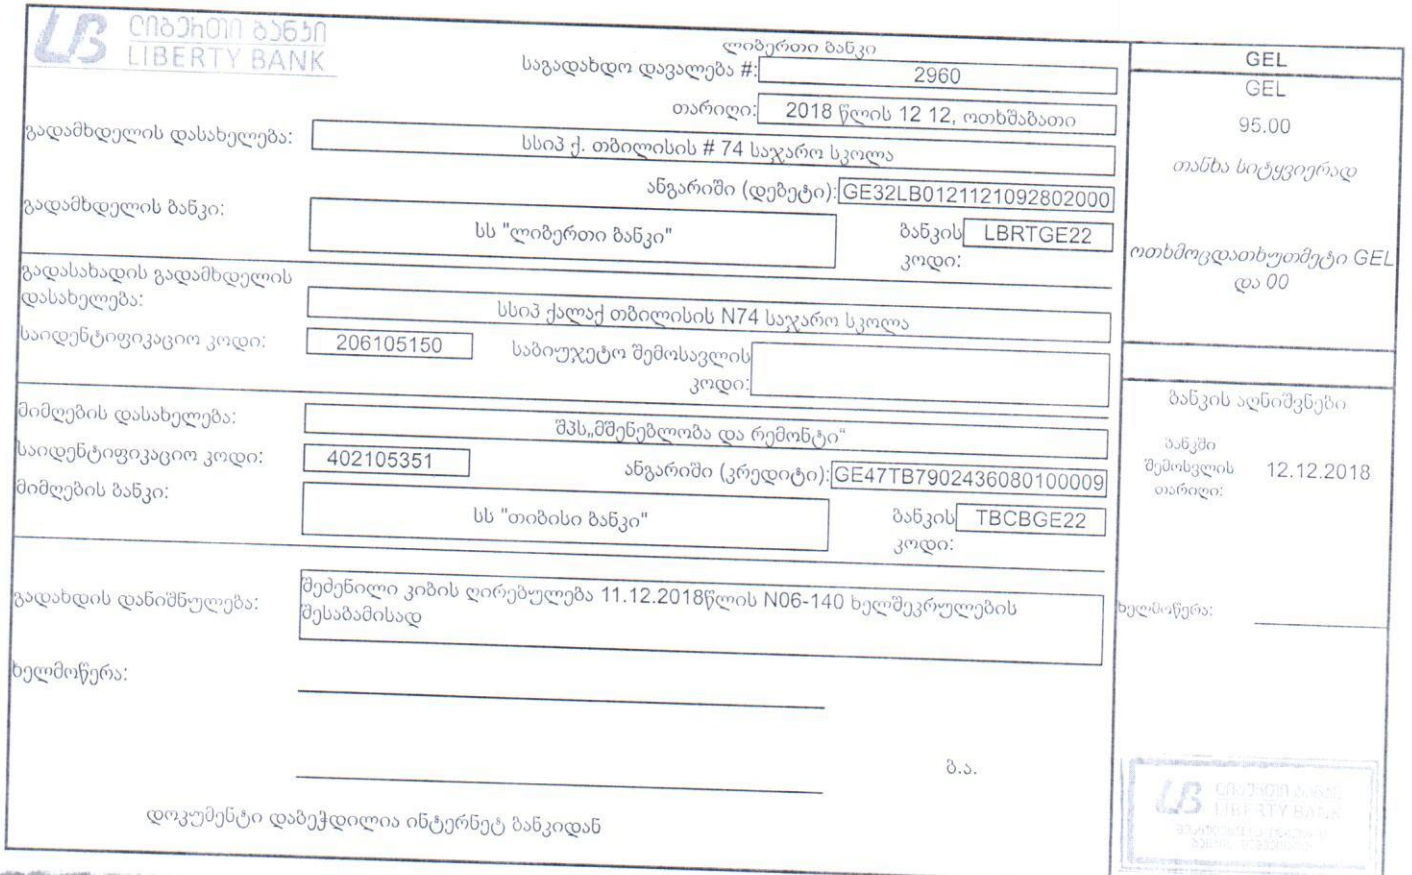 ლიბერთი ბანკი
LIBERTY BANK
ლიბერთი ბანკი
საგადახდო დავალება #: 2960
თარიღი: 2018 წლის 12 12, ოთხშაბათი
გადამხდელის დასახელება: სსიპ ქ. თბილისის # 74 საჯარო სკოლა
ანგარიში (დებეტი): GE32LB0121121092802000
გადამხდელის ბანკი: სს "ლიბერთი ბანკი" ბანკის კოდი: LBRTGE22
გადასახადის გადამხდელის
დასახელება: სსიპ ქალაქ თბილისის N74 საჯარო სკოლა
საიდენტიფიკაციო კოდი: 206105150 საბიუჯეტო შემოსავლის
კოდი:
მიმღების დასახელება: შპს„მშენებლობა და რემონტი“
საიდენტიფიკაციო კოდი: 402105351 ანგარიში (კრედიტი): GE47TB7902436080100009
მიმღების ბანკი: სს "თიბისი ბანკი" ბანკის კოდი: TBCBGE22
გადახდის დანიშნულება: შეძენილი კიბის ღირებულება 11.12.2018წლის N06-140 ხელშეკრულების
შესაბამისად
ხელმოწერა:
ბ.ა.
დოკუმენტი დაბეჭდილია ინტერნეტ ბანკიდან
GEL
GEL
95.00
თანხა სიტყვიერად
ოთხმოცდათხუთმეტი GEL
და 00
ბანკის აღნიშვნები
ბანკში
შემოსვლის 12.12.2018
თარიღი:
ხელმოწერა:
ლიბერთი ბანკი
LIBERTY BANK